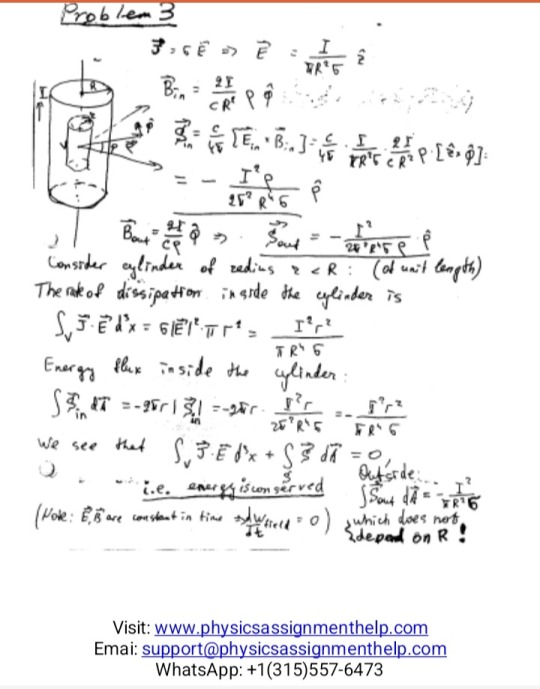 Problem 3
J⃗ = σ E⃗ => E⃗ = I / πR²σ ẑ
B⃗in = 2I / cR² ρ φ̂
S⃗in = c/4π [E⃗in × B⃗in] = c/4π · I / πR²σ · 2I / cR² ρ · [ẑ × φ̂] =
= - I²ρ / 2π²R⁴σ ρ̂
I
R
B⃗out = 2I / cρ φ̂ => S⃗out = - I² / 2π²R²σρ ρ̂
Consider cylinder of radius r < R : (of unit length)
The rate of dissipation inside the cylinder is
∫v J⃗·E⃗ d³x = σ|E⃗|²·πr² = I²r² / πR⁴σ
Energy flux inside the cylinder:
∫S⃗in dA⃗ = -2πr|S⃗in| = -2πr · I²r / 2π²R⁴σ = - I²r² / πR⁴σ
We see that ∫v J⃗·E⃗ d³x + ∫s S⃗ dA⃗ = 0,
i.e. energy is conserved
Outside:
∫S⃗out dA⃗ = - I² / πR²σ
(Note: E⃗, B⃗ are constant in time => dWfield / dt = 0)
which does not
depend on R !
Visit: www.physicsassignmenthelp.com
Emai: support@physicsassignmenthelp.com
WhatsApp: +1(315)557-6473